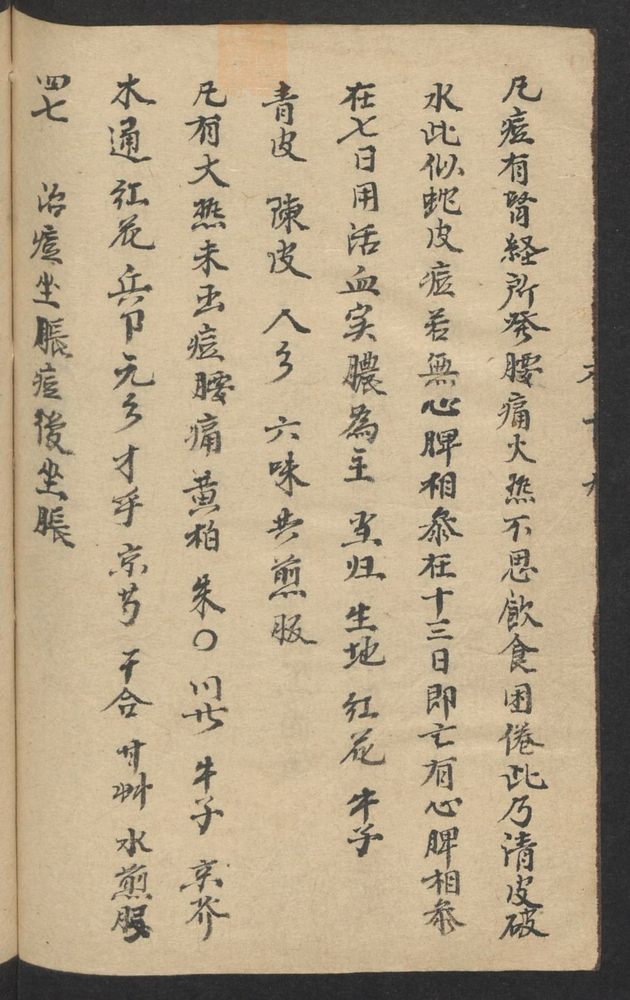 凡痘有腎経所發腰痛大热不思飲食困倦此乃清皮破
水此似蛇皮痘若無心脾相叅在十三日即亡有心脾相叅
在七日用活血实膿為主 当归 生地 红花 牛子
青皮 陳皮 人参 六味共煎服
凡有大热未出痘腰痛 黄柏 朱〇 川 牛子 京芥
木通 红花 元参 京芍 干合 甘艸 水煎服
四七 治痘坐脹痘後坐脹